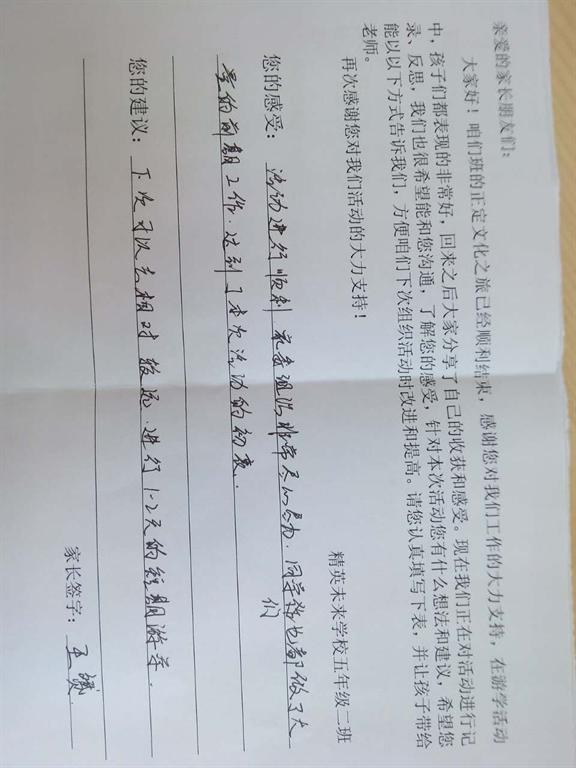 亲爱的家长朋友们：
大家好！咱们班的正定文化之旅已经顺利结束，感谢您对我们工作的大力支持，在游学活动
中，孩子们都表现的非常好，回来之后大家分享了自己的收获和感受。现在我们正在对活动进行记
录、反思，我们也很希望能和您沟通，了解您的感受，针对本次活动您有什么想法和建议，希望您
能以以下方式告诉我们，方便咱们下次组织活动时改进和提高。请您认真填写下表，并让孩子带给
老师。
再次感谢您对我们活动的大力支持！
精英未来学校五年级二班
您的感受：活动进行顺利 家委组织非常尽心尽力.同学们也都做了大
量的前期工作.达到了本次活动的初衷.
您的建议：下次可以去相对较远.进行1-2天的短期游学.
家长签字：王